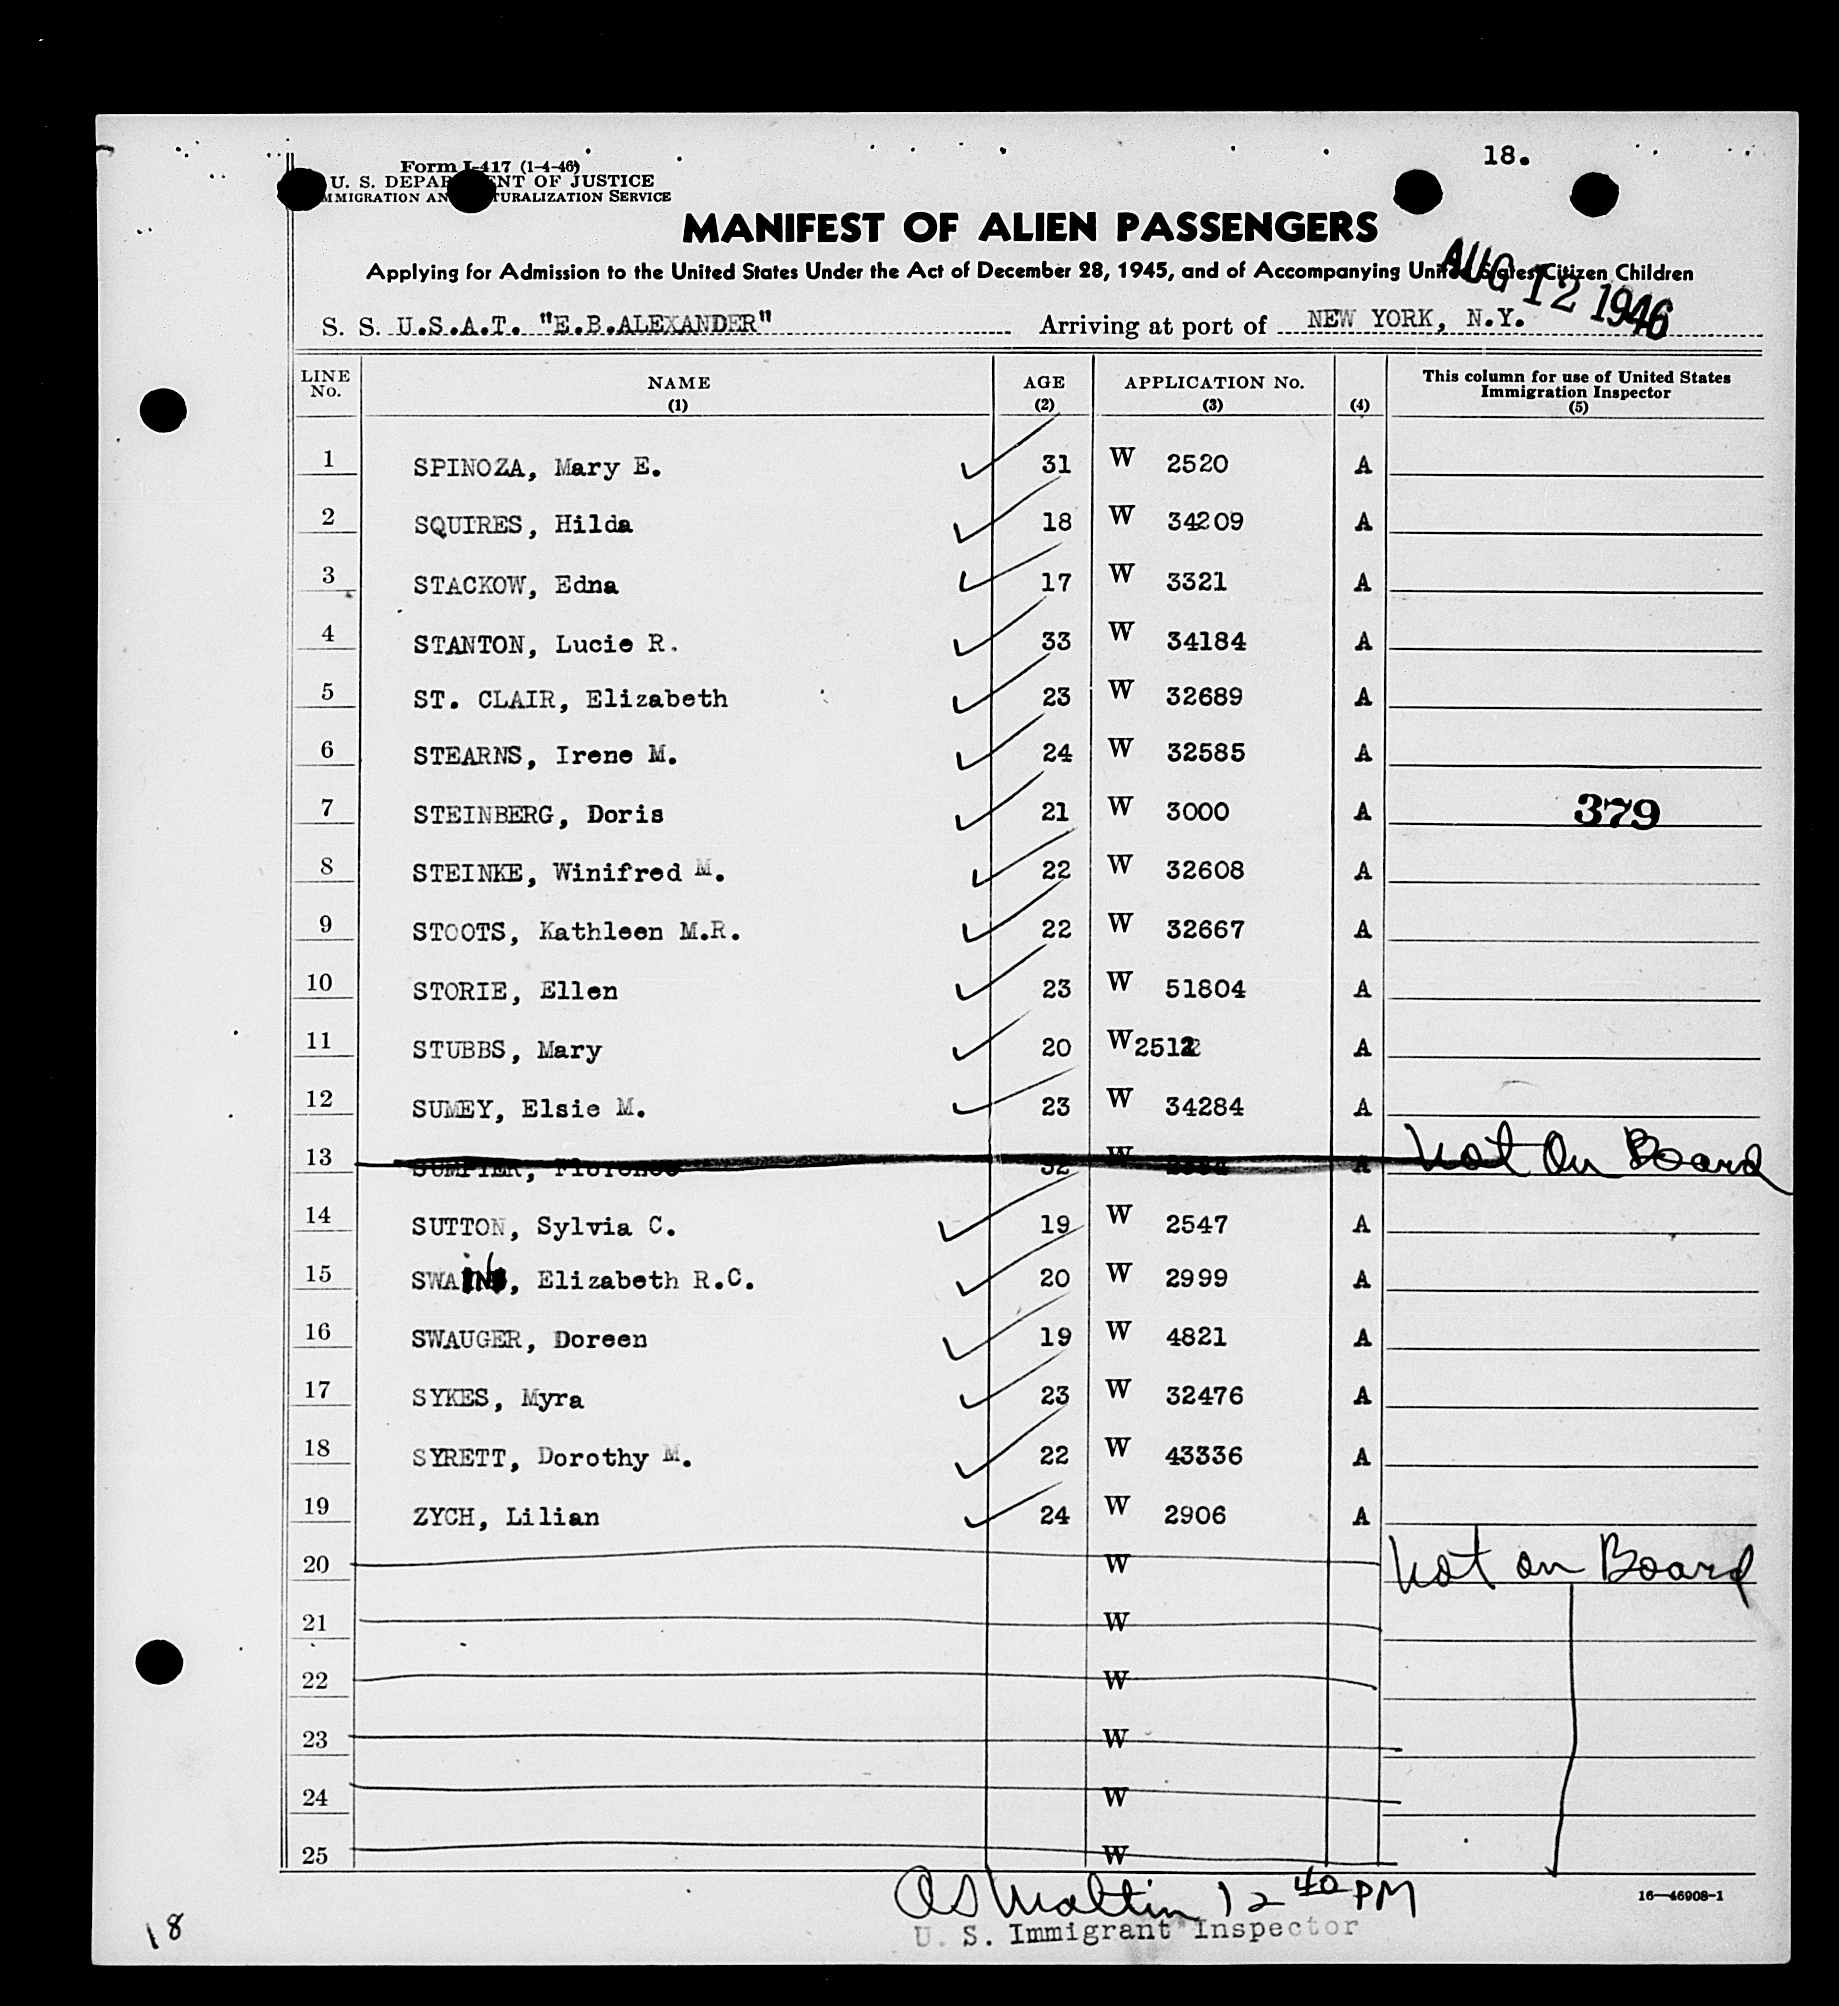 18.
Form I-417 (1-4-46)
U. S. DEPARTMENT OF JUSTICE
IMMIGRATION AND NATURALIZATION SERVICE
MANIFEST OF ALIEN PASSENGERS
Applying for Admission to the United States Under the Act of December 28, 1945, and of Accompanying United States Citizen Children
AUG 12 1946
S. S. U.S.A.T. "E.B.ALEXANDER" Arriving at port of NEW YORK, N.Y.
LINE No. NAME (1) AGE (2) APPLICATION No. (3) (4) This column for use of United States Immigration Inspector (5)
1 SPINOZA, Mary E. 31 W 2520 A
2 SQUIRES, Hilda 18 W 34209 A
3 STACKOW, Edna 17 W 3321 A
4 STANTON, Lucie R. 33 W 34184 A
5 ST. CLAIR, Elizabeth 23 W 32689 A
6 STEARNS, Irene M. 24 W 32585 A
7 STEINBERG, Doris 21 W 3000 A 379
8 STEINKE, Winifred M. 22 W 32608 A
9 STOOTS, Kathleen M.R. 22 W 32667 A
10 STORIE, Ellen 23 W 51804 A
11 STUBBS, Mary 20 W A
12 SUMEY, Elsie M. 23 W 34284 A
13 SUMPTER, Florence 32 W A Not On Board
14 SUTTON, Sylvia C. 19 W 2547 A
15 Elizabeth R.C. 20 W 2999 A
16 SWAUGER, Doreen 19 W 4821 A
17 SYKES, Myra 23 W 32476 A
18 SYRETT, Dorothy M. 22 W 43336 A
19 ZYCH, Lilian 24 W 2906 A
20 W Not on Board
21 W
22 W
23 W
24 W
25 W
12 40 PM
U. S. Immigrant Inspector
16—46908-1
18